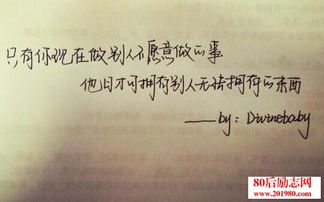 只有你现在做别人不愿意做的事
他日才可拥有别人无法拥有的东西
——by：Divinebaby
80后励志网
www.201980.com